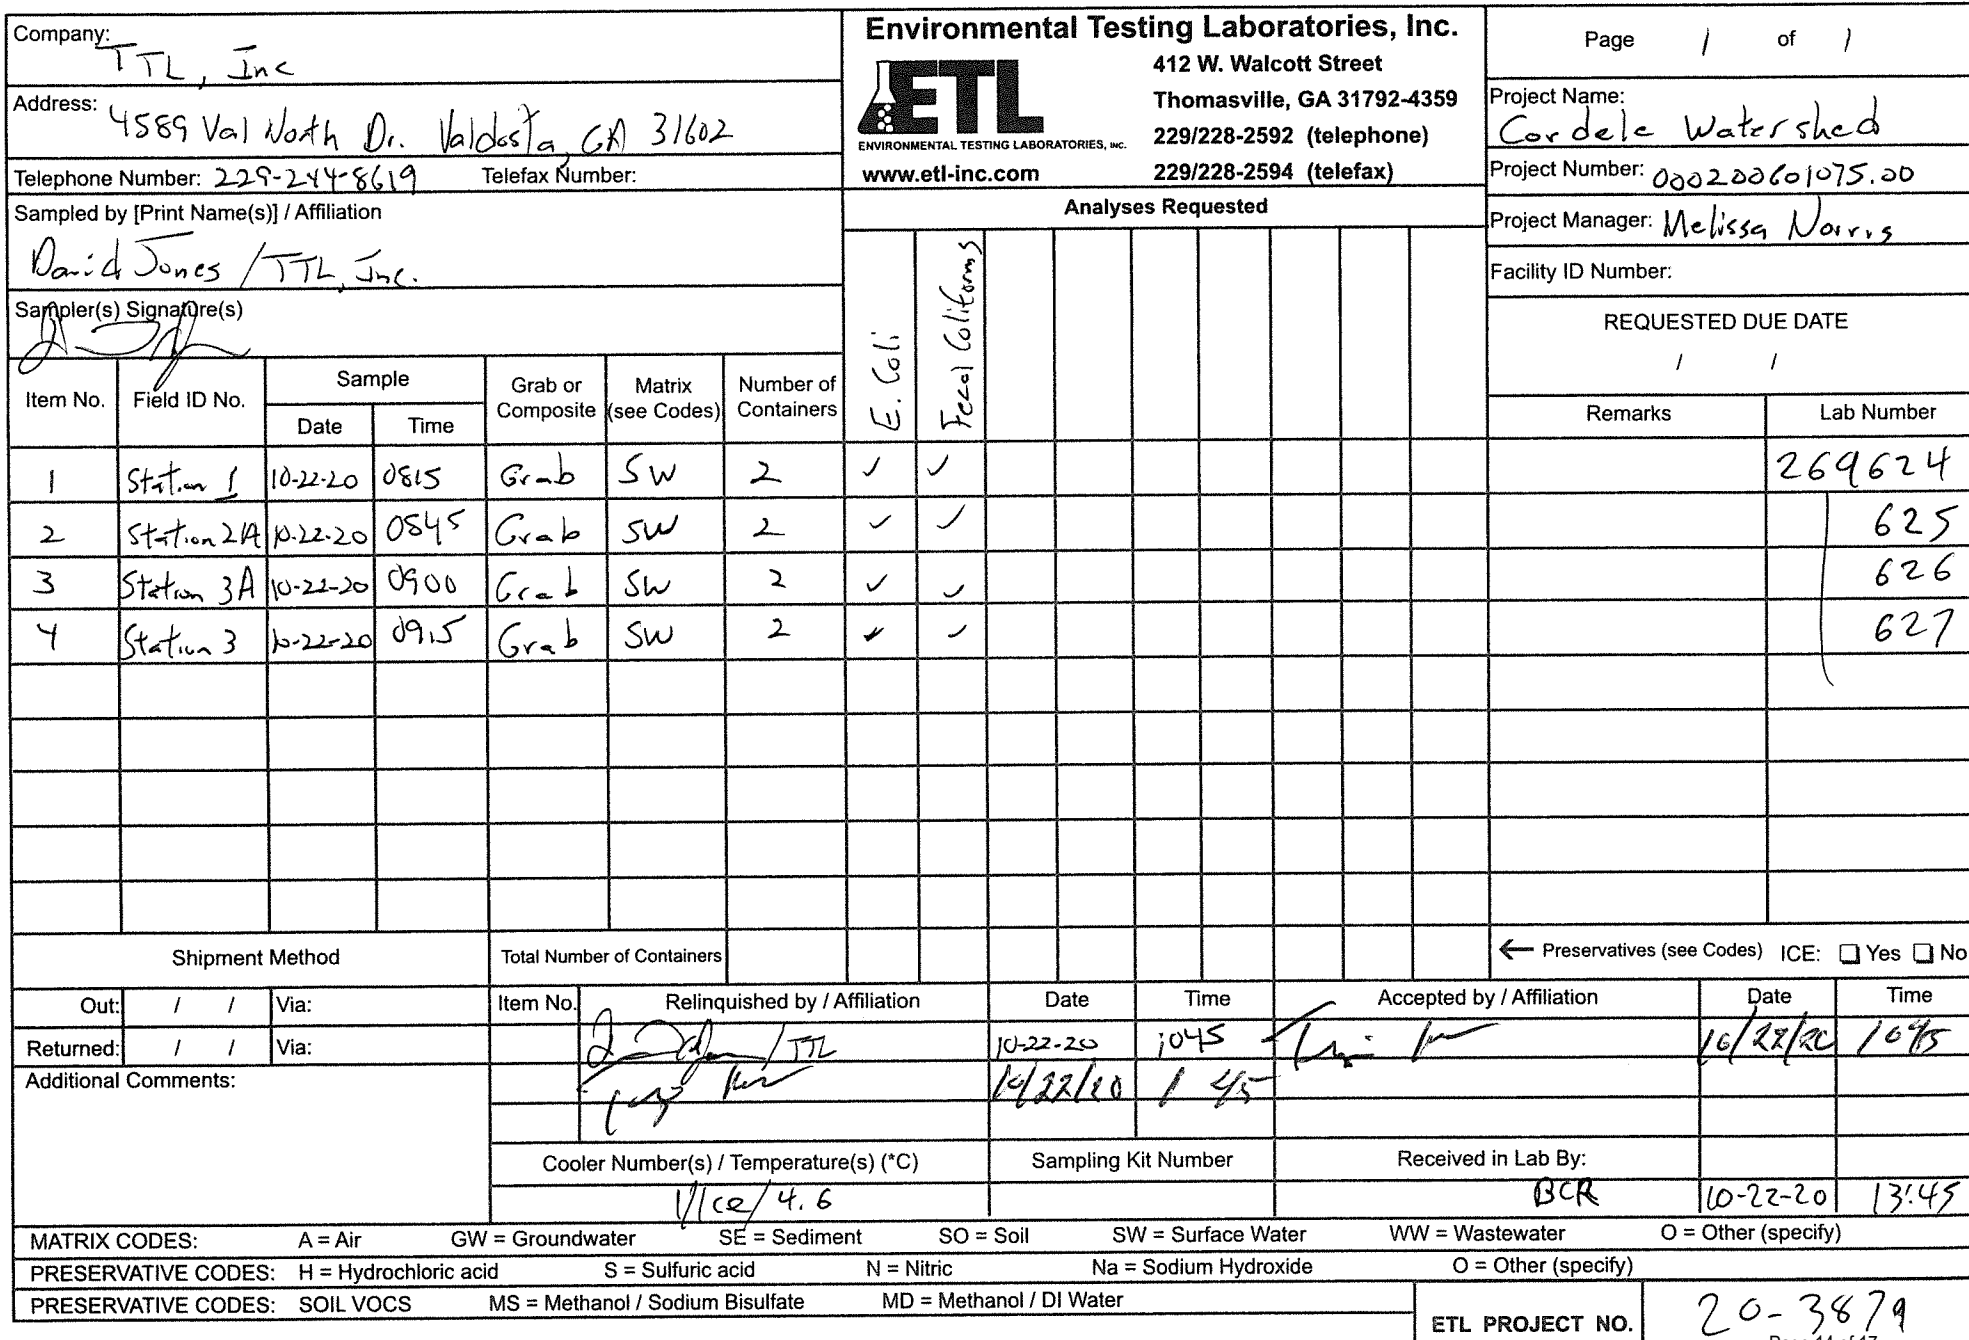 Company: TTL, Inc
Address: 4589 Val North Dr. Valdosta, GA 31602
Telephone Number: 229-244-8619 Telefax Number:
Sampled by [Print Name(s)] / Affiliation
David Jones / TTL, Inc.
Sampler(s) Signature(s)
Environmental Testing Laboratories, Inc.
ETL
ENVIRONMENTAL TESTING LABORATORIES, INC.
www.etl-inc.com
412 W. Walcott Street
Thomasville, GA 31792-4359
229/228-2592 (telephone)
229/228-2594 (telefax)
Page 1 of 1
Project Name: Cordele Watershed
Project Number: 000200601075.00
Project Manager: Melissa Norris
Facility ID Number:
REQUESTED DUE DATE
/ /
Analyses Requested
E. Coli
Fecal Coliforms
Item No. Field ID No. Sample Date Time Grab or Composite Matrix (see Codes) Number of Containers Remarks Lab Number
1 Station 1 10-22-20 0815 Grab SW 2 ✓ ✓ 269624
2 Station 2A 10-22-20 0845 Grab SW 2 ✓ ✓ 625
3 Station 3A 10-22-20 0900 Grab SW 2 ✓ ✓ 626
4 Station 3 10-22-20 0915 Grab SW 2 ✓ ✓ 627
Shipment Method Total Number of Containers ← Preservatives (see Codes) ICE: ❑ Yes ❑ No
Out: / / Via: Item No. Relinquished by / Affiliation Date Time Accepted by / Affiliation Date Time
Returned: / / Via: / TTL 10-22-20 1045 10/22/20 1045
Additional Comments: 10/22/20
Cooler Number(s) / Temperature(s) (*C) Sampling Kit Number Received in Lab By:
1/Ice/4.6 BCR 10-22-20 13:45
MATRIX CODES: A = Air GW = Groundwater SE = Sediment SO = Soil SW = Surface Water WW = Wastewater O = Other (specify)
PRESERVATIVE CODES: H = Hydrochloric acid S = Sulfuric acid N = Nitric Na = Sodium Hydroxide O = Other (specify)
PRESERVATIVE CODES: SOIL VOCS MS = Methanol / Sodium Bisulfate MD = Methanol / DI Water
ETL PROJECT NO. 20-3879